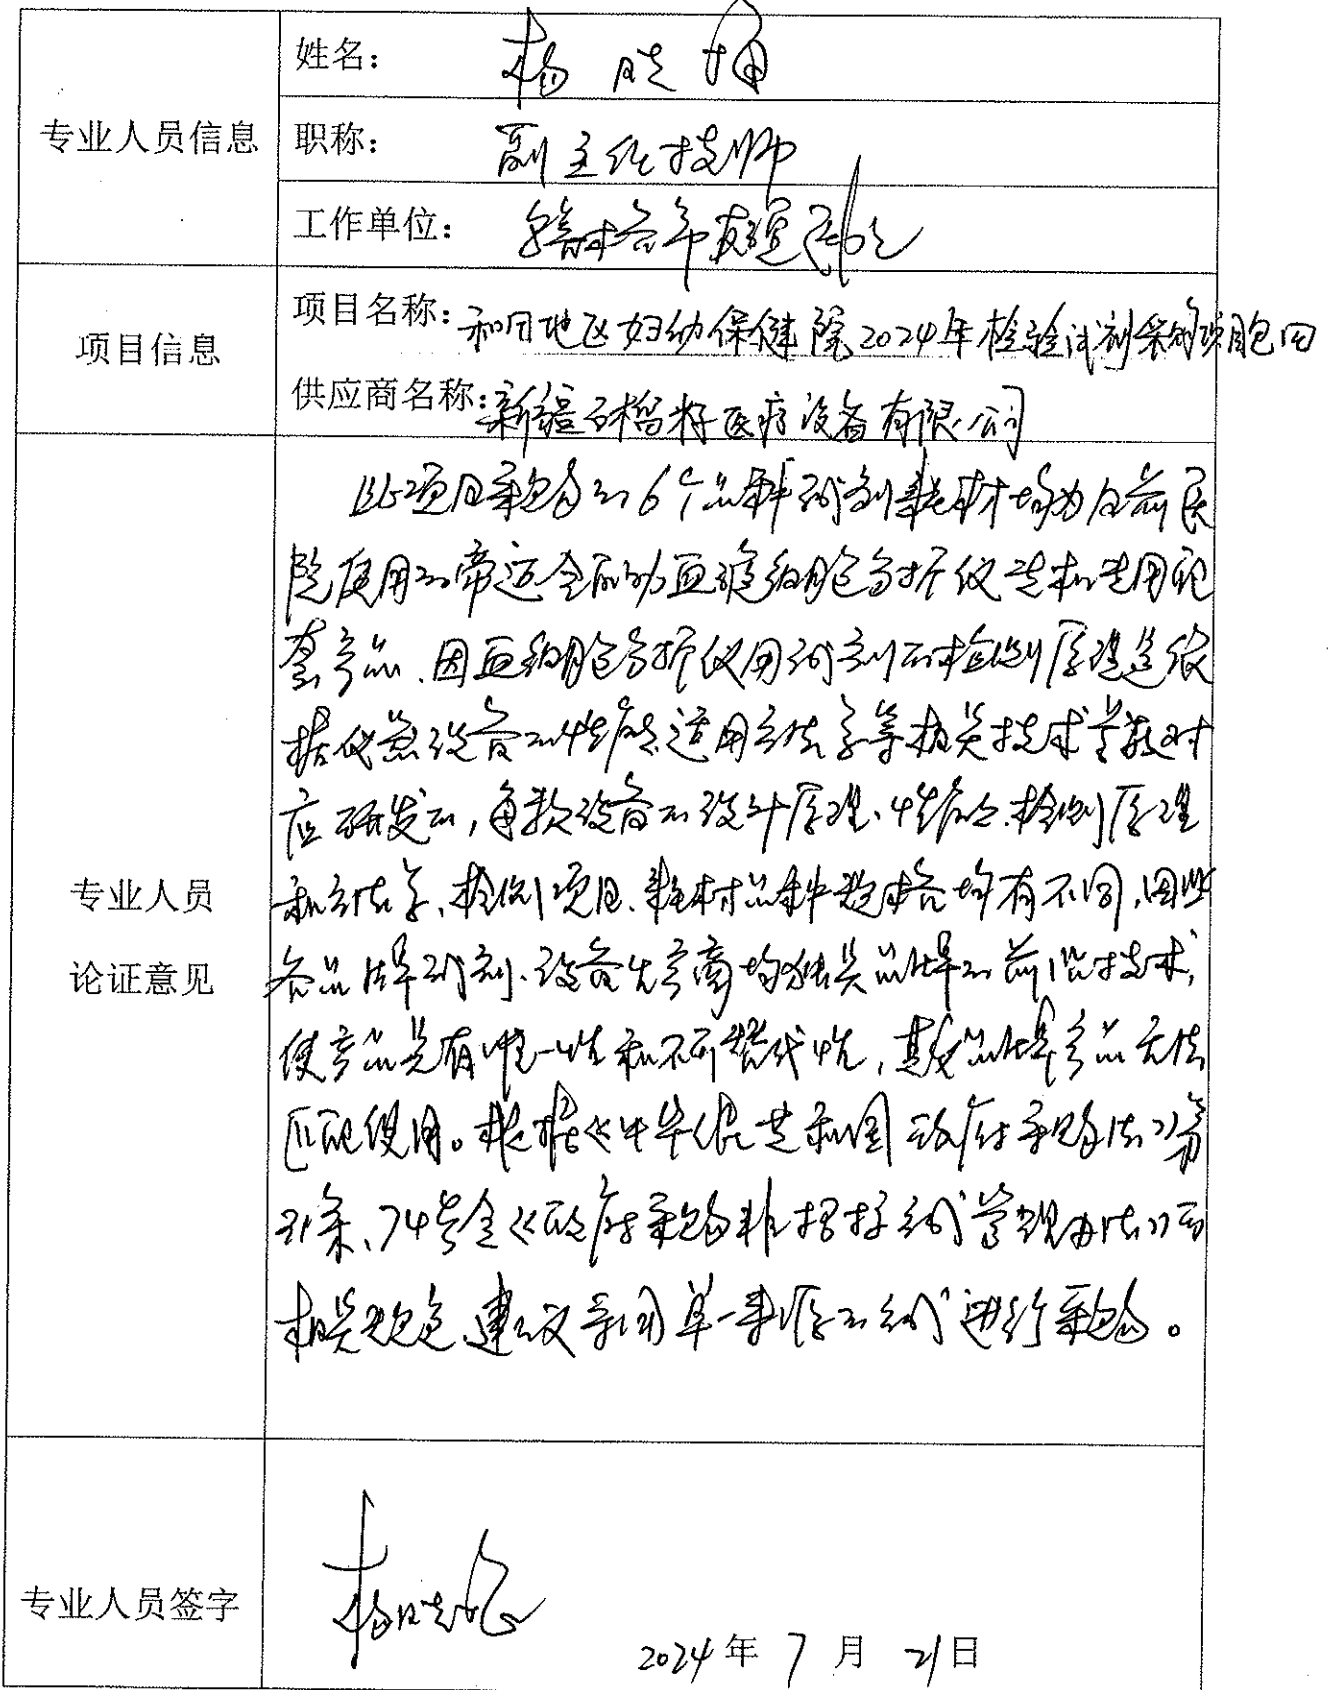 姓名：杨晓
专业人员信息
职称：副主任技师
工作单位：
项目信息
项目名称：和田地区妇幼保健院2024年检验试剂采购项目包四
供应商名称：新疆石榴籽医疗设备有限公司
此项目采购的6个品种试剂耗材均为目前医
院使用的帝迈全自动血液细胞分析仪进机专用配
套产品、因血细胞分析仪用试剂的检测原理是依
据仪器设备的性能、适用方法学等相关技术参数对
应研发的，每款设备的设计原理、性能、检测原理
和方法学、检测项目、耗材品种规格均有不同，因此
各品牌试剂、设备生产商均独具品牌的前沿技术，
使产品具有唯一性和不可替代性，其他品牌产品无法
匹配使用。根据《中华人民共和国政府采购法》第
31条、74号令《政府采购非招标方式管理办法》的
相关规定、建议采用单一来源的方式进行采购。
专业人员
论证意见
专业人员签字
杨晓
2024年7月21日